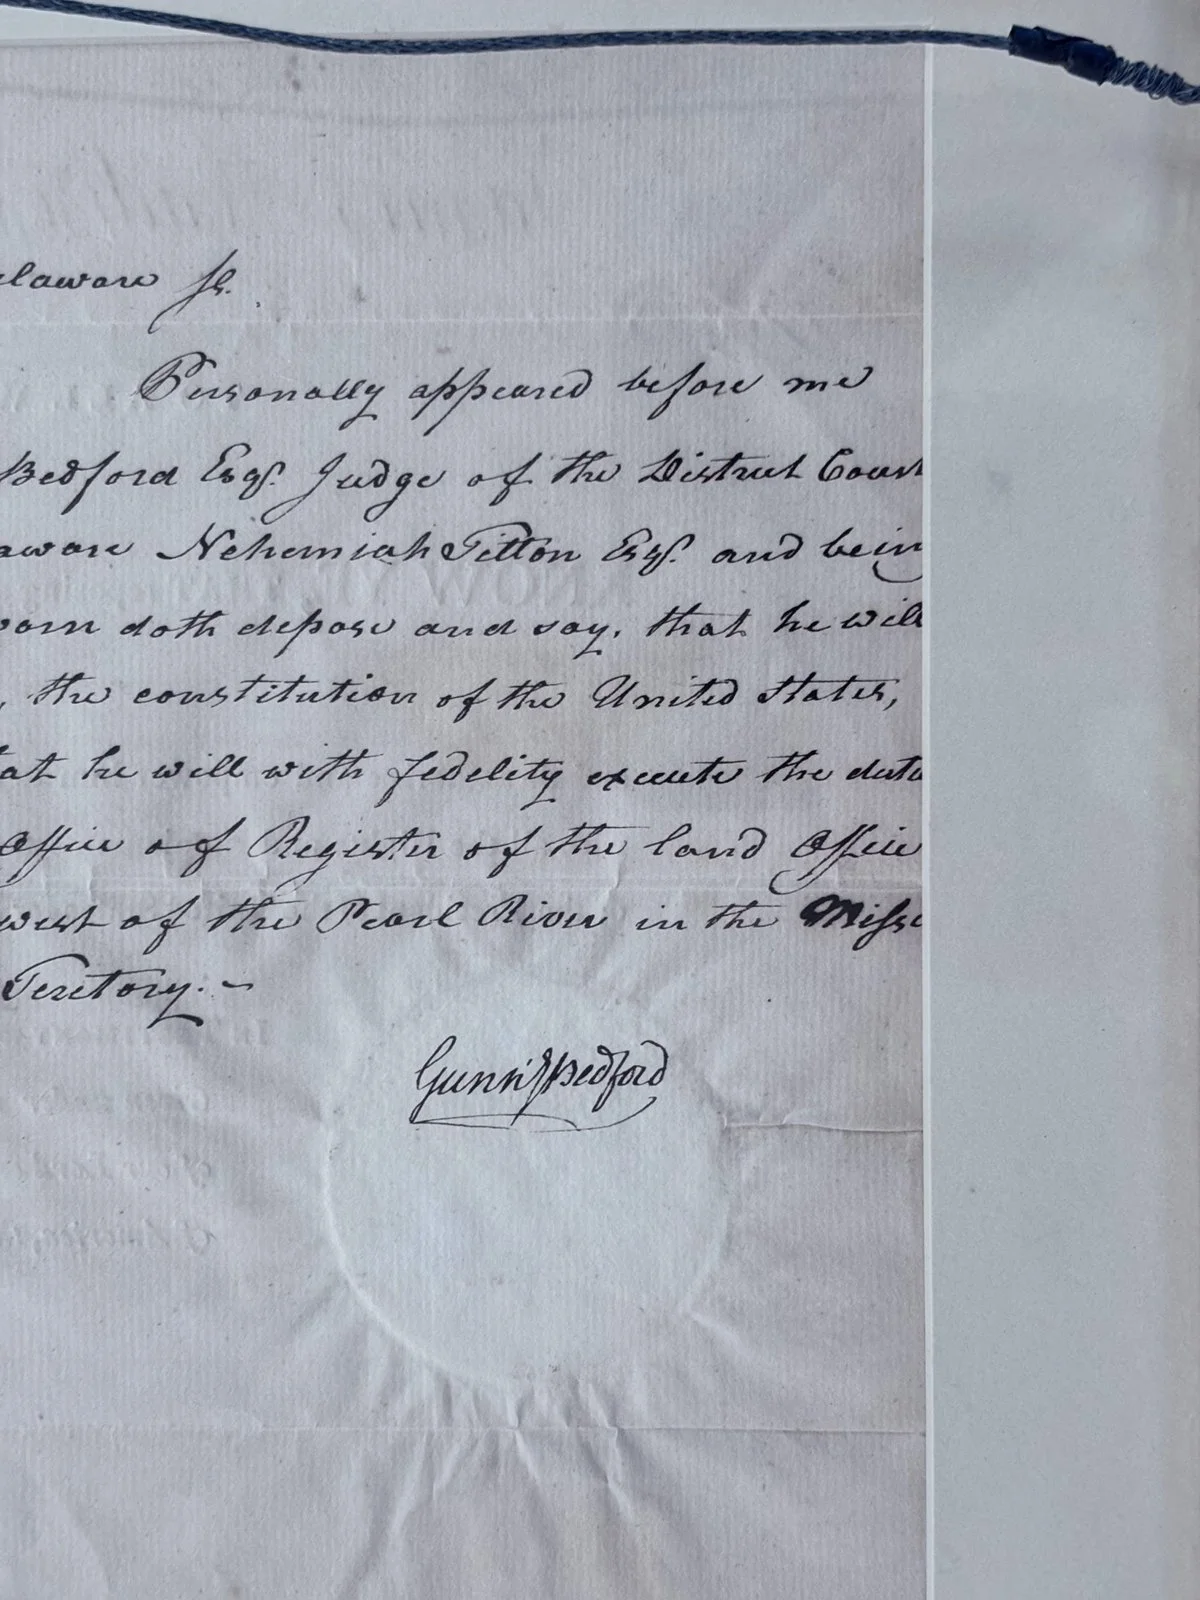 elaware ss.
Personally appeared before me
Bedford Esqr. Judge of the District Court
aware Nehemiah Tilton Esqr. and bein
orn doth depose and say, that he will
, the constitution of the United States,
at he will with fidelity execute the duti
Office of Register of the land Office
west of the Pearl River in the Missi
Teretory. -
Gunn'g Bedford
NOW